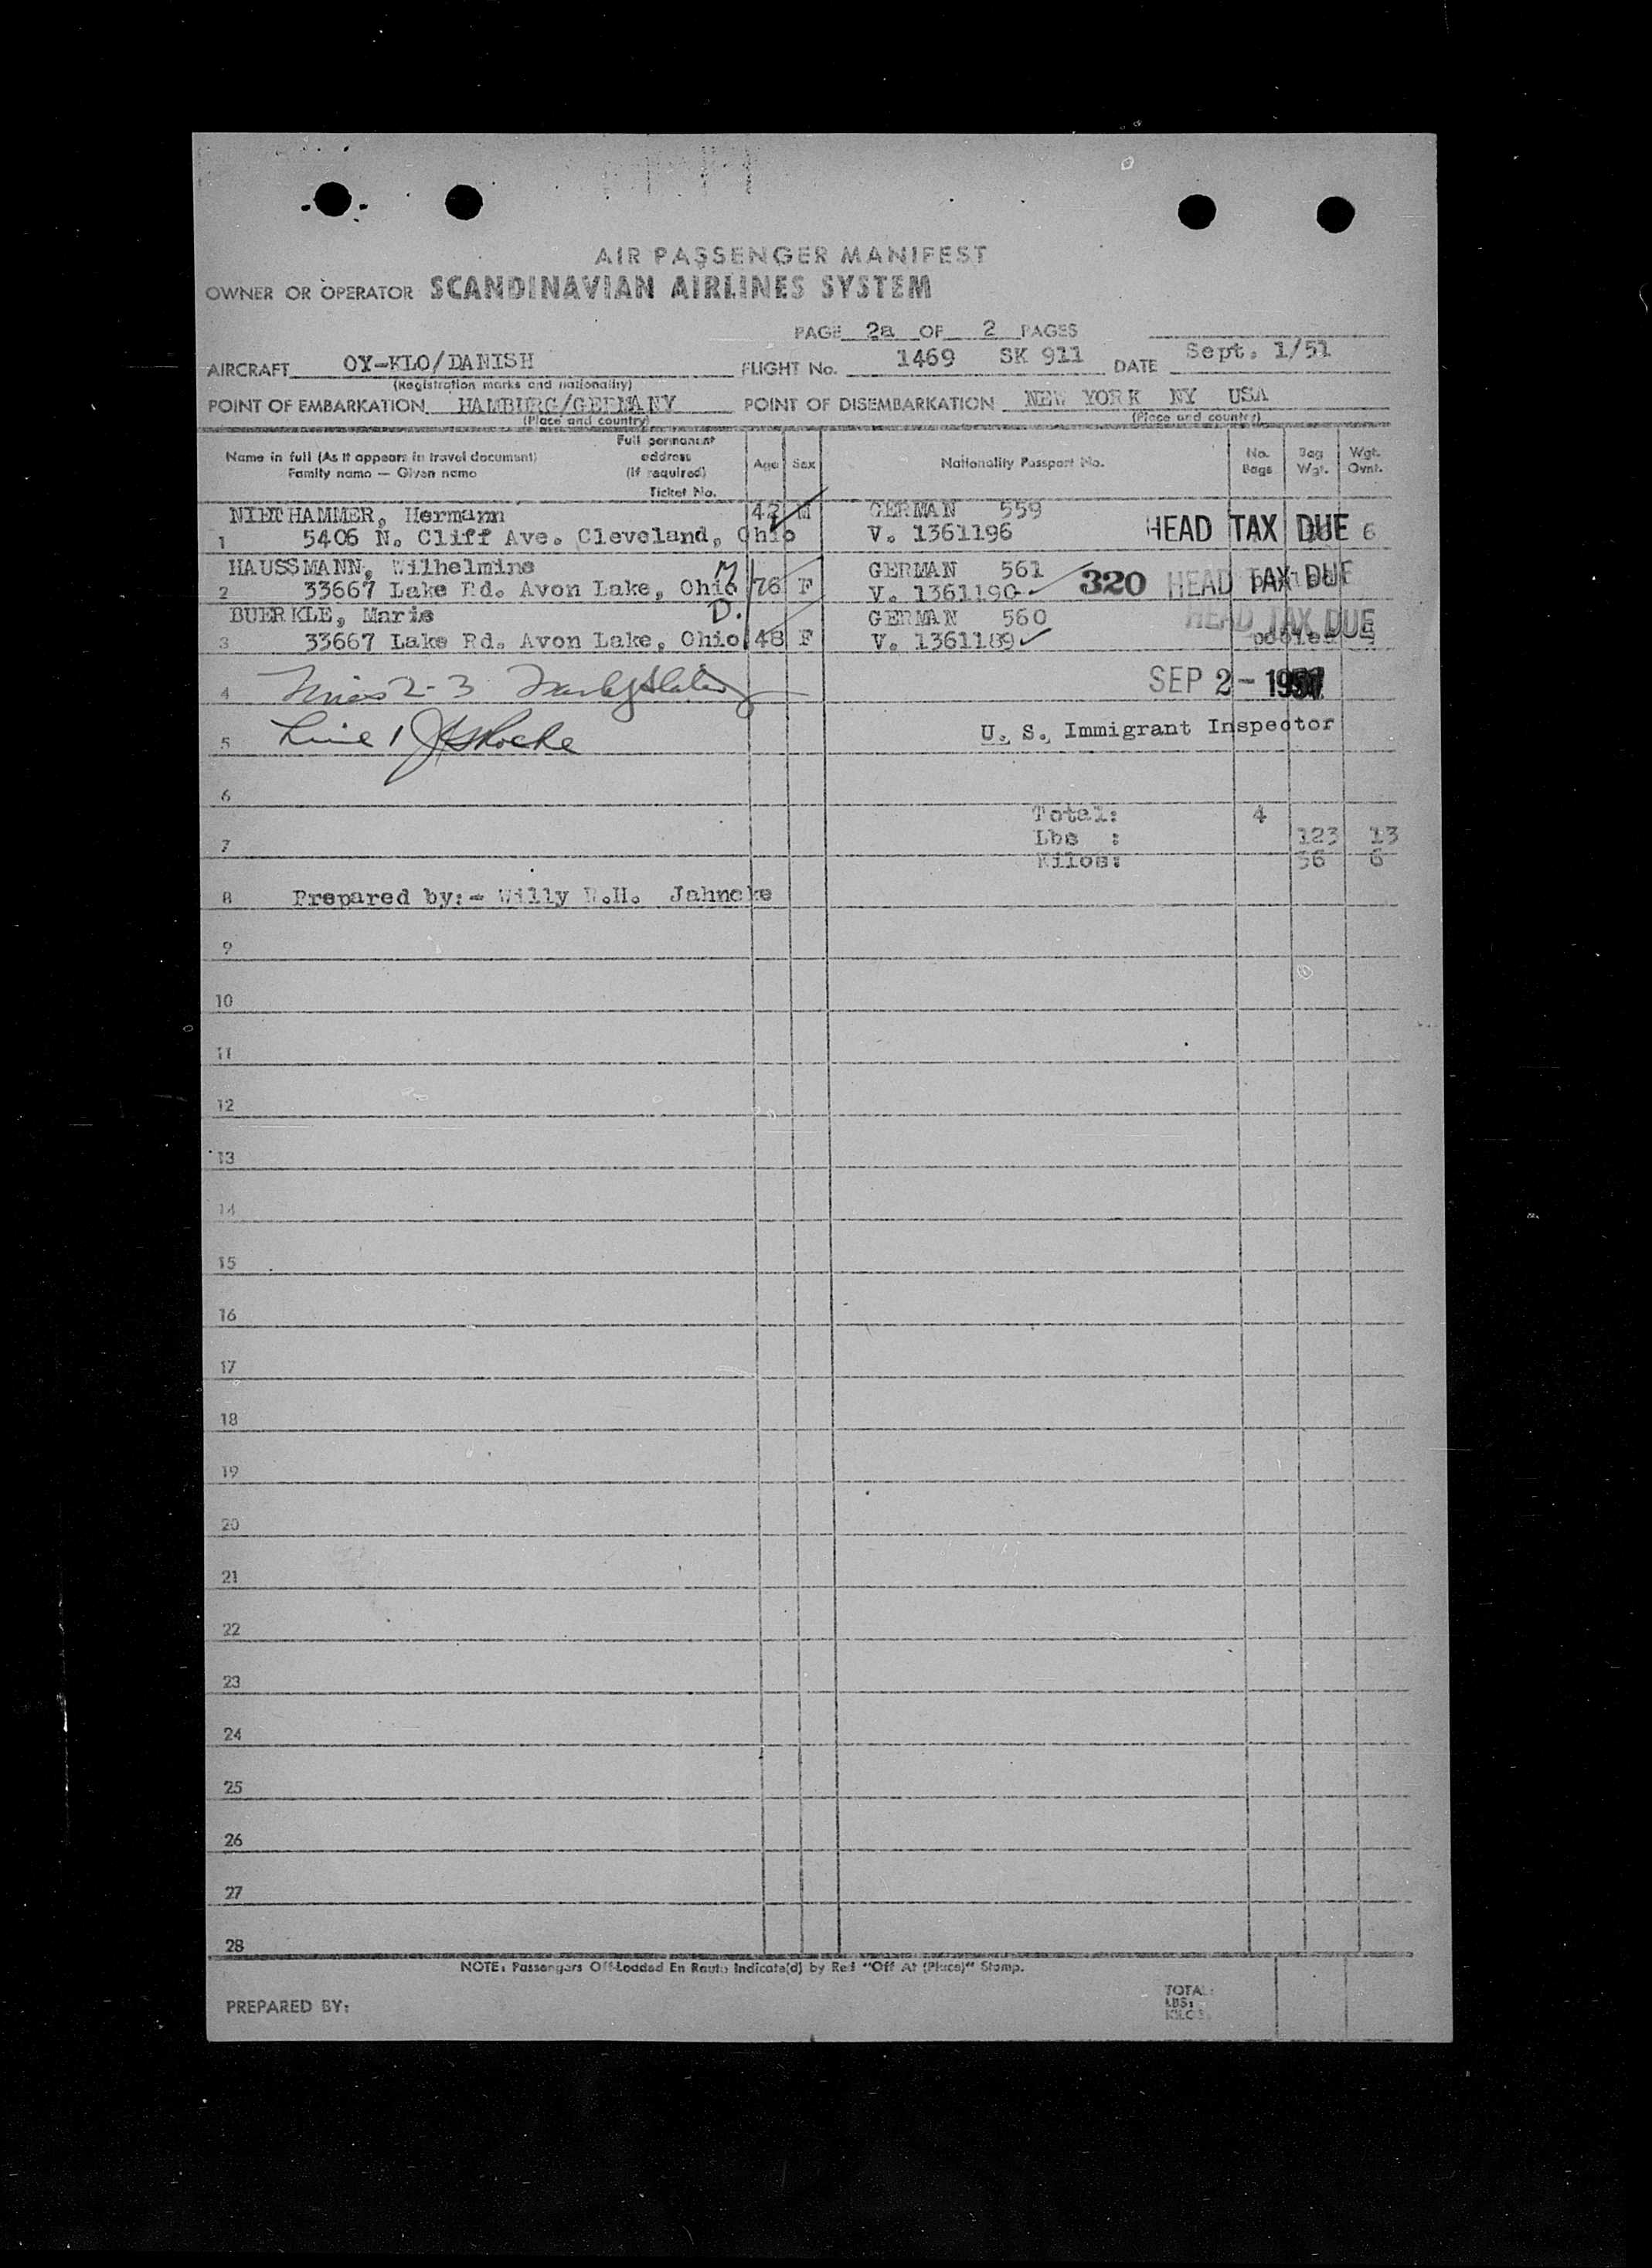 AIR PASSENGER MANIFEST
OWNER OR OPERATOR SCANDINAVIAN AIRLINES SYSTEM
PAGE 2a OF 2 PAGES
AIRCRAFT OY-KLO/DANISH FLIGHT No. 1469 SK 911 DATE Sept. 1/51
(Registration marks and nationality)
POINT OF EMBARKATION HAMBURG/GERMANY POINT OF DISEMBARKATION NEW YORK NY USA
(Place and country) (Place and country)
Name in full (As it appears in travel document) Family name — Given name Full permanent address (If required) Ticket No. Age Sex Nationality Passport No. No. Bags Bag Wgt. Wgt. Ovnt.
NIETHAMMER, Hermann 42 M GERMAN 559
1 5406 N. Cliff Ave. Cleveland, Ohio V. 1361196 HEAD TAX DUE 6
HAUSSMANN, Wilhelmine M GERMAN 561
2 33667 Lake Rd. Avon Lake, Ohio 76 F V. 1361190 320 HEAD TAX DUE
BUERKLE, Marie D. GERMAN 560 HEAD TAX DUE
3 33667 Lake Rd. Avon Lake, Ohio 48 F V. 1361189 pooled
4 Lines 2-3 SEP 2 - 1951
5 Line 1 U. S. Immigrant Inspector
6
Total: 4
7 Lbs : 123 13
Kilos: 56 6
8 Prepared by:- Willy Jahncke
9
10
11
12
13
14
15
16
17
18
19
20
21
22
23
24
25
26
27
28
NOTE: Passengers Off-Loaded En Route Indicate(d) by Red "Off At (Place)" Stamp.
PREPARED BY: TOTAL:
LBS:
KILOS: